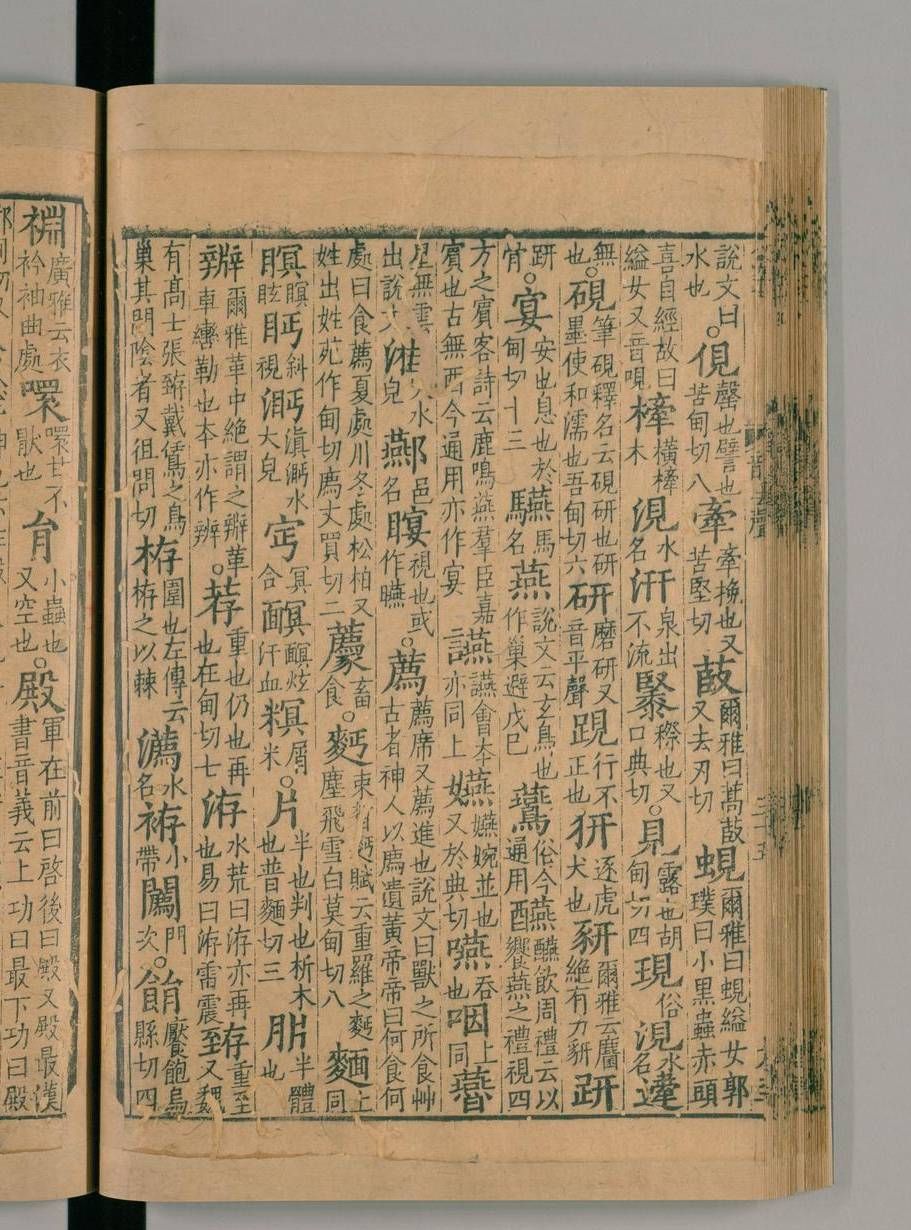 說文曰水也○俔磬也譬也苦甸切八牽牽挽也又苦堅切菣爾雅曰蒿菣又去刃切蜆爾雅曰蜆縊女郭璞曰小黑蟲赤頭
喜自經故曰縊女又音哯㮓橫㮓木涀水名汧泉出不流穄也又口典切○見露也胡甸切四現俗涀水名
無也○硯筆硯釋名云硯研也研墨使和濡也吾甸切六研磨研又音平聲趼行不正也逐虎犬也豜爾雅云麢絕有力豜趼
趼骨○宴安也息也於甸切十三驠馬名燕說文云玄鳥也作巢避戊己鷰俗今通用醼醼飲周禮云以饗燕之禮視四
方之賓客詩云鹿鳴燕羣臣嘉賓也古無酉今通用亦作宴讌讌會本亦同上嬿嬿婉並也又於典切嚥吞也咽上同
星無雲出說文大水皃酀邑名視也或作曣○薦薦席又薦進也說文曰獸之所食艸古者神人以廌遺黃帝帝曰何食何
處曰食薦夏處川冬處松柏又姓出姓苑作甸切廌丈買切二畜食○麪束晳麪賦云重羅之麪塵飛雪白莫甸切八麵上同
瞑瞑眩眄斜視滇水大皃冥合眩汗血屑米○片半也判也析木也普麵切三半體也
辨爾雅革中絕謂之辨革車轡勒也本亦作辨○荐重也仍也再也在甸切七洊水荒曰洊亦再也易曰洊雷震臶重至又魏
有高士張臶戴鵀之鳥巢其門陰者又徂悶切栫圍也左傳云栫之以棘瀳水名袸小帶門次○䬼厭飽烏縣切四
裫廣雅云衣衿袖曲處噮噮甘不猒也肙小蟲也又空也○殿軍在前曰啓後曰殿又殿最漢書音義云上功曰最下功曰殿